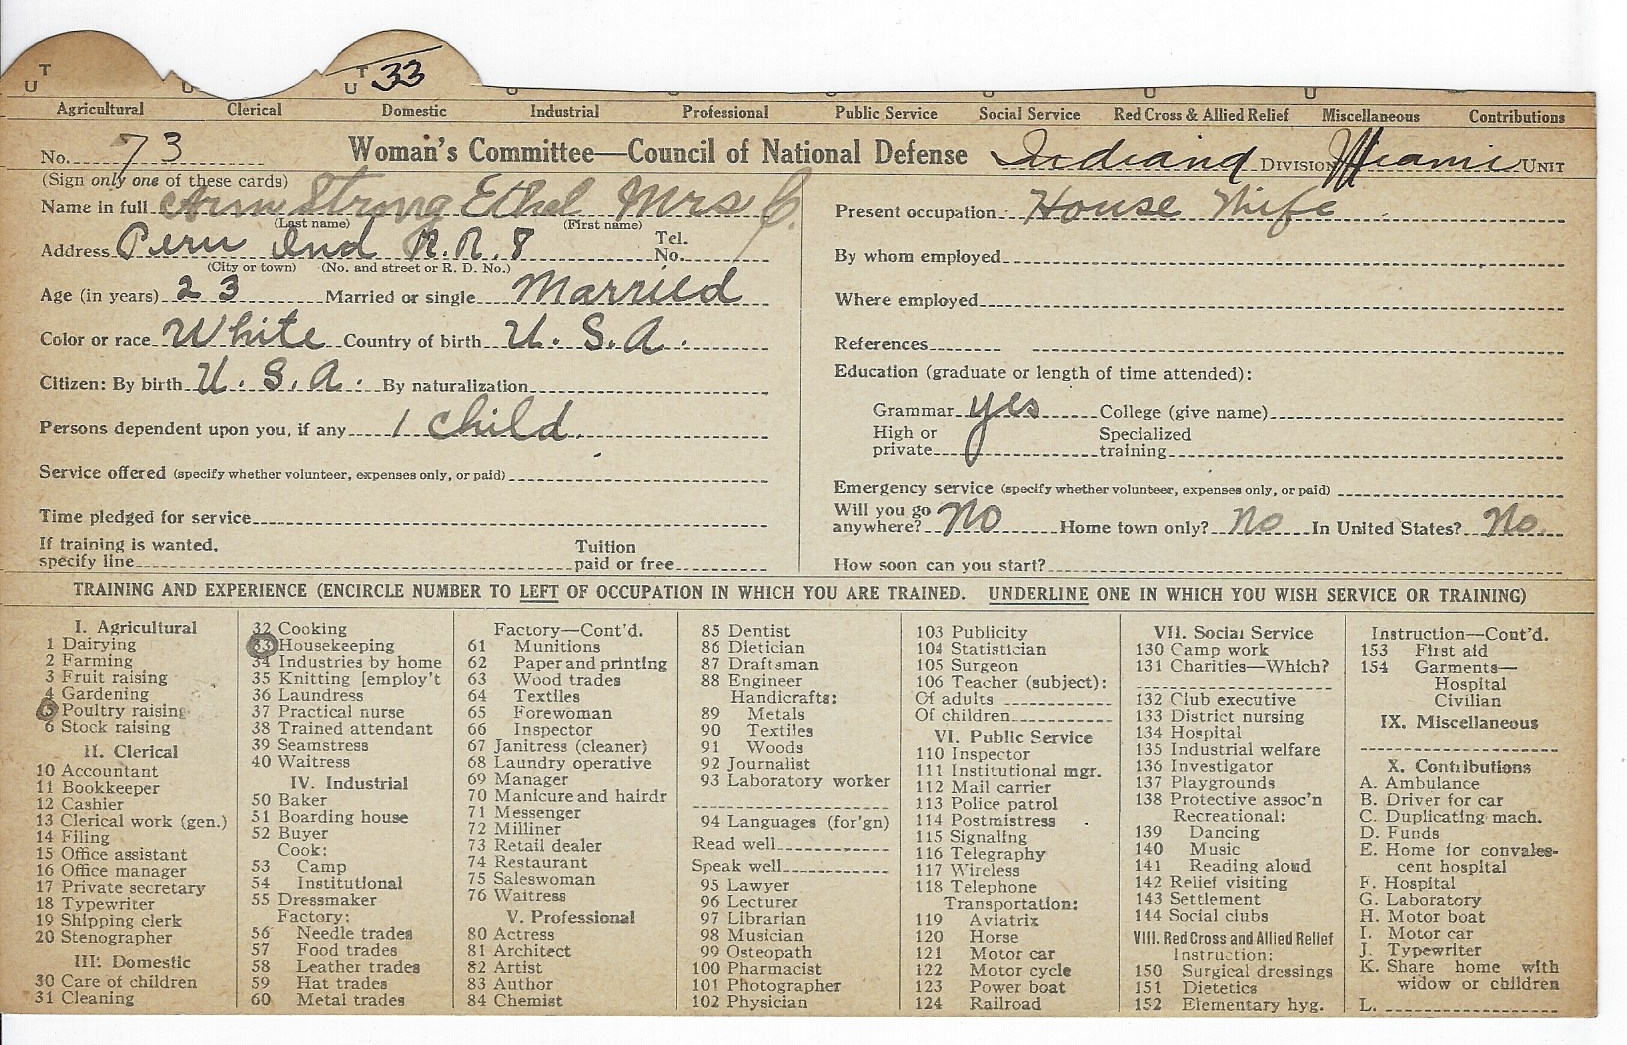 T U U T U 33 U U U
Agricultural Clerical Domestic Industrial Professional Public Service Social Service Red Cross & Allied Relief Miscellaneous Contributions
No. 73 Woman's Committee—Council of National Defense Indiana DIVISION Miami UNIT
(Sign only one of these cards)
Name in full Arm Strong Ethel Mrs C.
(Last name) (First name)
Address Peru Ind R.R. 8 Tel. No.
(City or town) (No. and street or R. D. No.)
Age (in years) 23 Married or single Married
Color or race White Country of birth U.S.A.
Citizen: By birth U.S.A. By naturalization
Persons dependent upon you, if any 1 Child.
Service offered (specify whether volunteer, expenses only, or paid)
Time pledged for service
If training is wanted, Tuition
specify line paid or free
Present occupation House Wife
By whom employed
Where employed
References
Education (graduate or length of time attended):
Grammar yes College (give name)
High or Specialized
private training
Emergency service (specify whether volunteer, expenses only, or paid)
Will you go
anywhere? No Home town only? No In United States? No.
How soon can you start?
TRAINING AND EXPERIENCE (ENCIRCLE NUMBER TO LEFT OF OCCUPATION IN WHICH YOU ARE TRAINED. UNDERLINE ONE IN WHICH YOU WISH SERVICE OR TRAINING)
I. Agricultural
1 Dairying
2 Farming
3 Fruit raising
4 Gardening
5 Poultry raising
6 Stock raising
II. Clerical
10 Accountant
11 Bookkeeper
12 Cashier
13 Clerical work (gen.)
14 Filing
15 Office assistant
16 Office manager
17 Private secretary
18 Typewriter
19 Shipping clerk
20 Stenographer
III. Domestic
30 Care of children
31 Cleaning
32 Cooking
33 Housekeeping
34 Industries by home
35 Knitting [employ't
36 Laundress
37 Practical nurse
38 Trained attendant
39 Seamstress
40 Waitress
IV. Industrial
50 Baker
51 Boarding house
52 Buyer
Cook:
53 Camp
54 Institutional
55 Dressmaker
Factory:
56 Needle trades
57 Food trades
58 Leather trades
59 Hat trades
60 Metal trades
Factory—Cont'd.
61 Munitions
62 Paper and printing
63 Wood trades
64 Textiles
65 Forewoman
66 Inspector
67 Janitress (cleaner)
68 Laundry operative
69 Manager
70 Manicure and hairdr
71 Messenger
72 Milliner
73 Retail dealer
74 Restaurant
75 Saleswoman
76 Waitress
V. Professional
80 Actress
81 Architect
82 Artist
83 Author
84 Chemist
85 Dentist
86 Dietician
87 Draftsman
88 Engineer
Handicrafts:
89 Metals
90 Textiles
91 Woods
92 Journalist
93 Laboratory worker
94 Languages (for'gn)
Read well
Speak well
95 Lawyer
96 Lecturer
97 Librarian
98 Musician
99 Osteopath
100 Pharmacist
101 Photographer
102 Physician
103 Publicity
104 Statistician
105 Surgeon
106 Teacher (subject):
Of adults
Of children
VI. Public Service
110 Inspector
111 Institutional mgr.
112 Mail carrier
113 Police patrol
114 Postmistress
115 Signaling
116 Telegraphy
117 Wireless
118 Telephone
Transportation:
119 Aviatrix
120 Horse
121 Motor car
122 Motor cycle
123 Power boat
124 Railroad
VII. Social Service
130 Camp work
131 Charities—Which?
132 Club executive
133 District nursing
134 Hospital
135 Industrial welfare
136 Investigator
137 Playgrounds
138 Protective assoc'n
Recreational:
139 Dancing
140 Music
141 Reading aloud
142 Relief visiting
143 Settlement
144 Social clubs
VIII. Red Cross and Allied Relief
Instruction:
150 Surgical dressings
151 Dietetics
152 Elementary hyg.
Instruction—Cont'd.
153 First aid
154 Garments—
Hospital
Civilian
IX. Miscellaneous
X. Contributions
A. Ambulance
B. Driver for car
C. Duplicating mach.
D. Funds
E. Home for convales-
cent hospital
F. Hospital
G. Laboratory
H. Motor boat
I. Motor car
J. Typewriter
K. Share home with
widow or children
L.